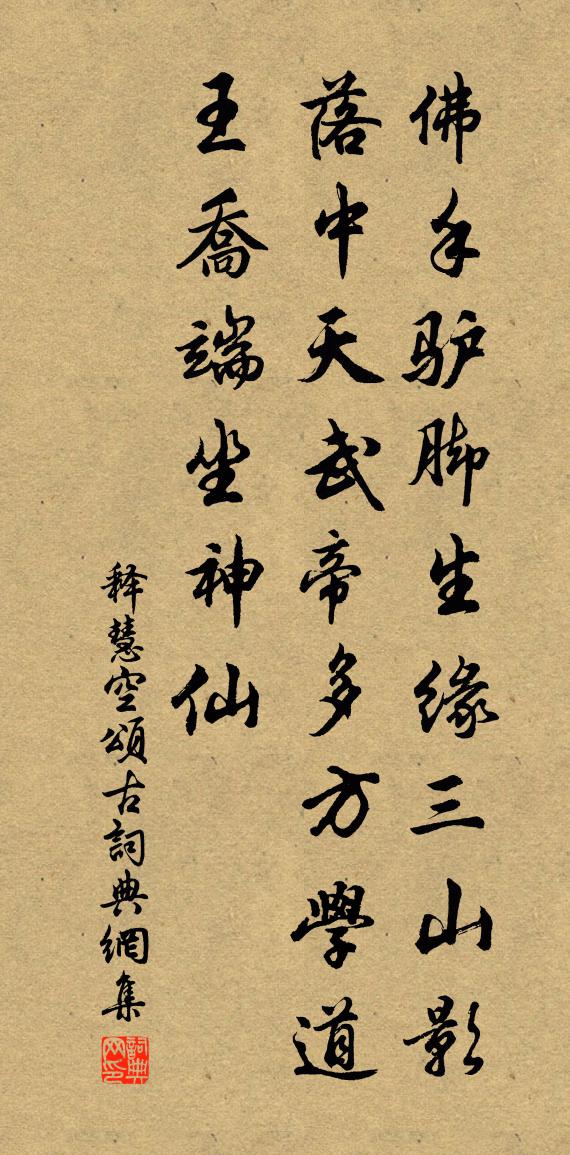 佛手驴脚生缘三山影
落中天武帝多方學道
王喬端坐神仙
释慧空頌古詞典網集
詞典网印